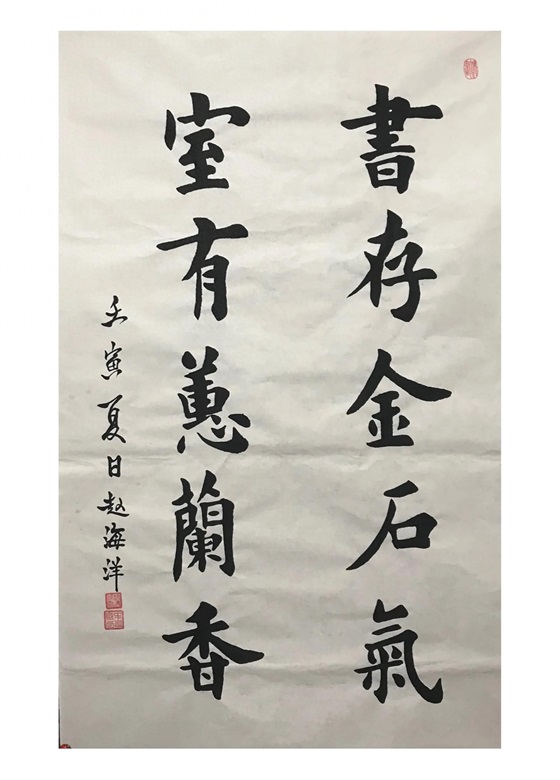 書存金石氣
室有蕙蘭香
壬寅夏日赵海洋